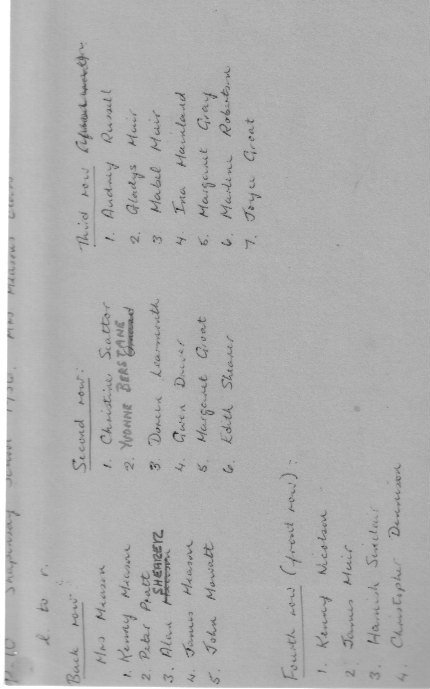 Shapinsay School 1956. Mrs Measons Class
l. to r.
Back row:
Mrs Meason
1. Kenny Meason
2. Peter Pratt
3. Alan SHEARER
4. James Meason
5. John Mowatt
Second row:
1. Christine Scatter
2. YVONNE BERSTANE
3. Doreen Learmonth
4. Gwen Driver
5. Margaret Groat
6. Edith Shearer
Third row
1. Audrey Russell
2. Gladys Muir
3 Mabel Muir
4. Ina Mainland
5. Margaret Gray
6. Marlene Robertson
7. Joyce Groat
Fourth row (front row):
1. Kenny Nicolson
2 James Muir
3. Hamish Sinclair
4. Christopher Dennison